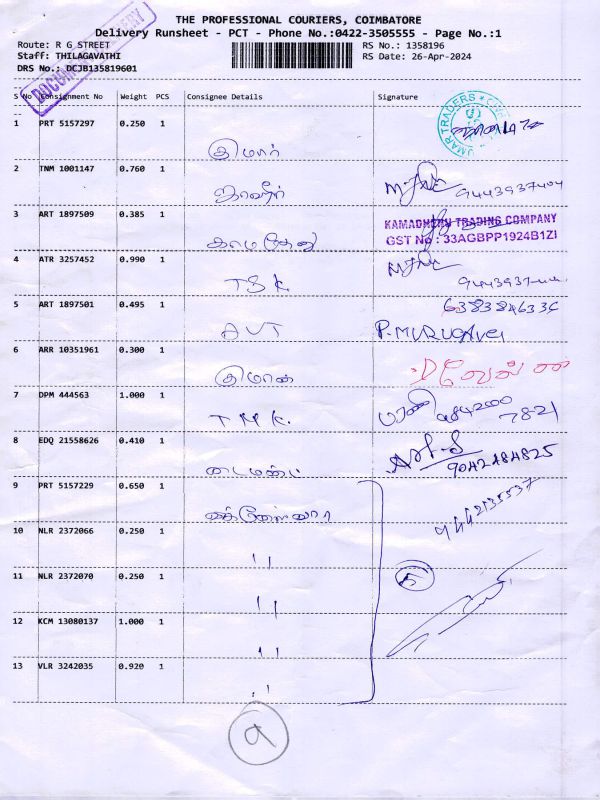 THE PROFESSIONAL COURIERS, COIMBATORE
Delivery Runsheet - PCT - Phone No.:0422-3505555 - Page No.:1
Route: R G STREET
RS No.: 1358196
Staff: THILAGAVATHI
RS Date: 26-Apr-2024
DRS No.: DCJB135819601
S No Consignment No Weight PCS Consignee Details Signature
1 PRT 5157297 0.250 1
குமார்
2 TNM 1001147 0.760 1
ஜவஹர் 9443937404
3 ART 1897509 0.385 1
காமதேனு
KAMADHENU TRADING COMPANY
GST No : 33AGBPP1924B1ZI
4 ATR 3257452 0.990 1
TSK
5 ART 1897501 0.495 1
6383846336
AVT P.MURUGAN
6 ARR 10351961 0.300 1
குமரன்
7 DPM 444563 1.000 1
TMK. மாரி 9842000
7821
8 EDQ 21558626 0.410 1
டைமண்ட் 9042484825
9 PRT 5157229 0.650 1
9442135537
10 NLR 2372066 0.250 1
"
11 NLR 2372070 0.250 1
"
5
12 KCM 13080137 1.000 1
"
13 VLR 3242035 0.920 1
"
9